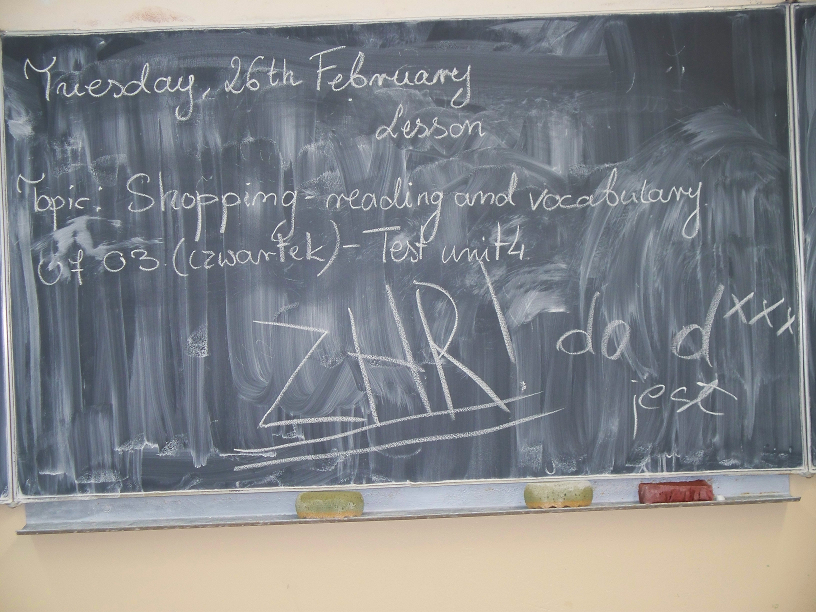 Tuesday, 26th February
Lesson
Topic: Shopping - reading and vocabulary.
07 03. (czwartek) - Test unit 4.
ZHR! do dxxx
jest